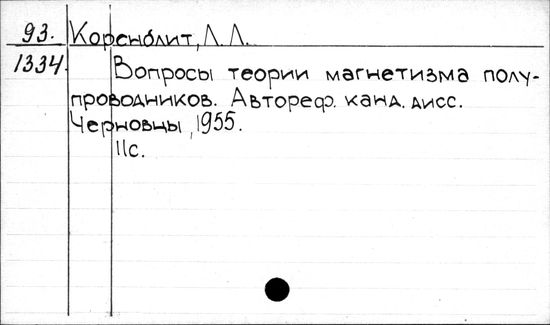 93. Коренблит, Л. Л.
1334. Вопросы теории магнетизма полу-
проводников. Автореф. канд. дисс.
Черновцы, 1955.
11с.